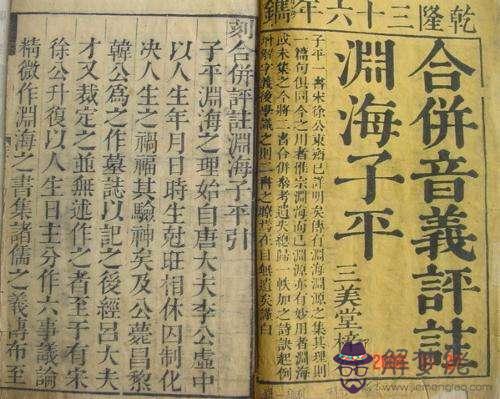 乾隆三十六年鐫
合併音義評註
淵海子平
三美堂梓
子平一書宋徐公東齋已詳明矣傳有淵海淵源之集其理則
一篇句俱同今之用者惟宗淵海而已淵源亦有妙用者淵海
或未集之今將二書合併參考遺失總歸一帙加之詩訣起例
解字義後學識之則一書之聯在目無遺矣謹白
刻合併評註淵海子平引
子平淵海之理始自唐大夫李公虛中
以人生年月日時生尅旺相休囚制化
決人生之禍福其驗神矣及公薨昌黎
韓公為之作墓誌以記之後經呂大夫
才又裁定之並無述作之者至于有宋
徐公升復以人生日主分作六事議論
精微作淵海之書集諸儒之義傳布至
解夢佬
https://www.jiemenglao.com